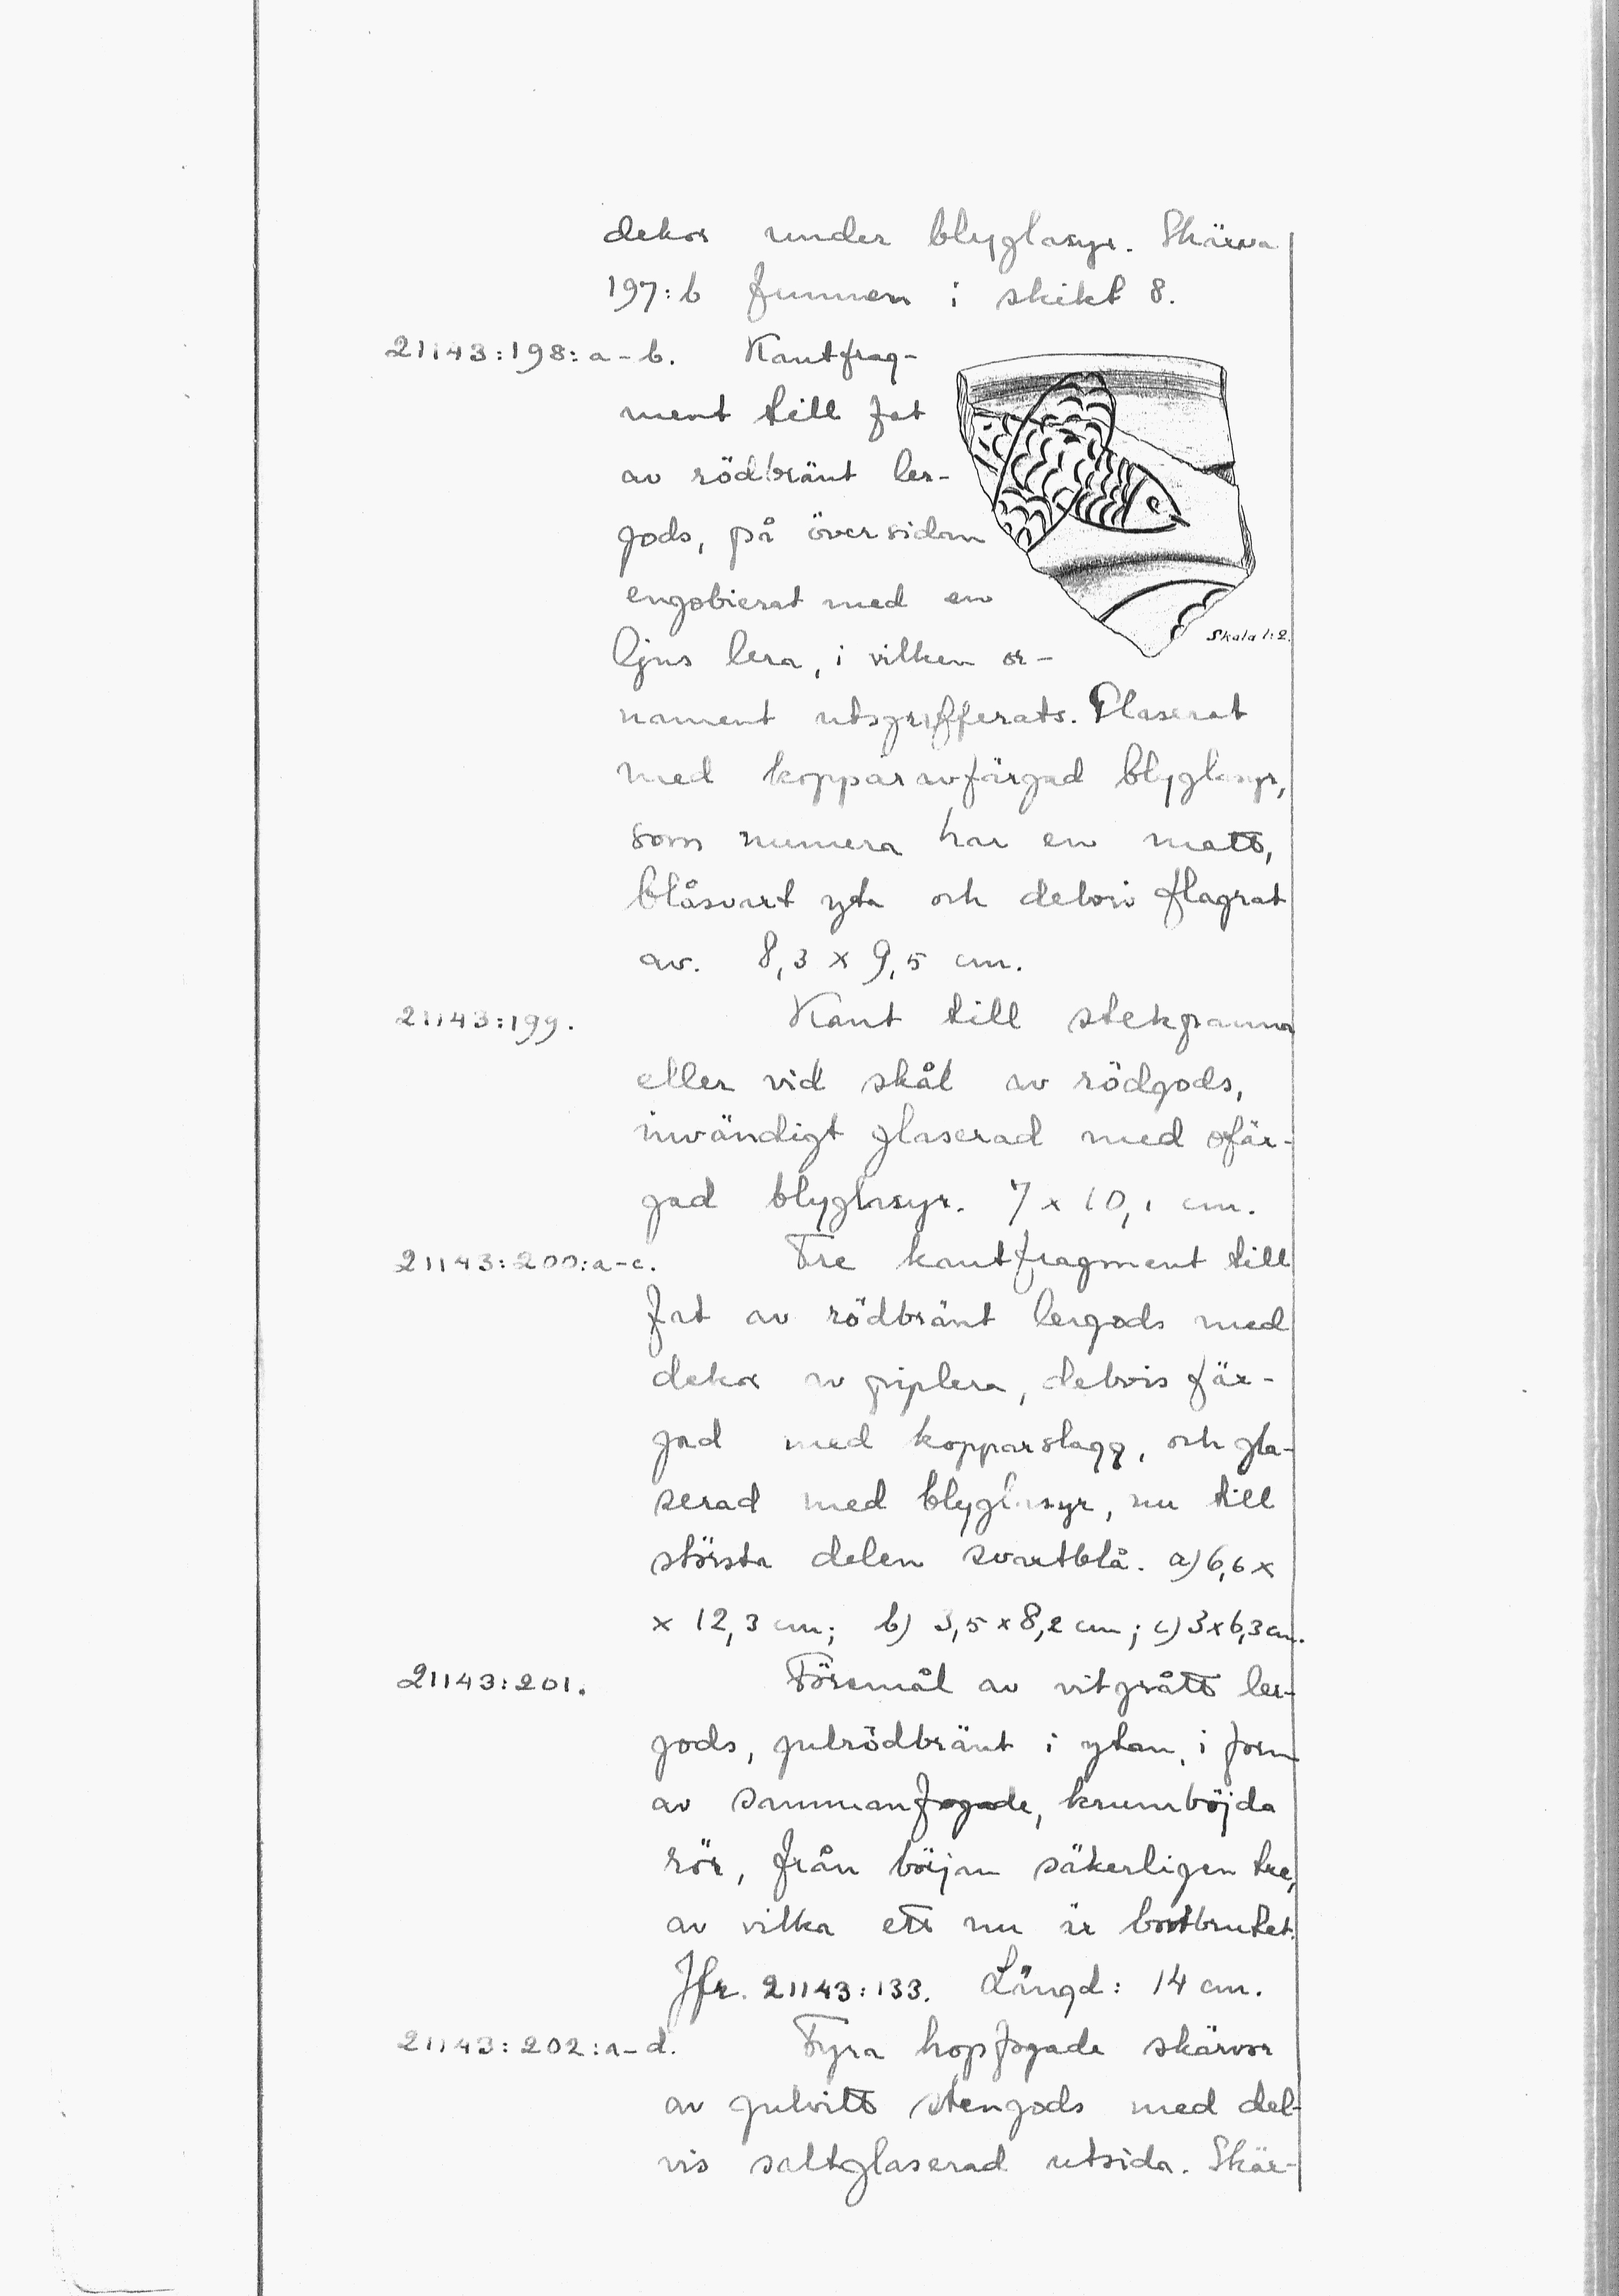 dekor under blyglasyr. Skärva
197:b funnen i skikt 8.
21143:198:a-b. Kantfrag-
ment till fat
av rödbränt ler-
gods, på översidan
engobierat med en
ljus lera, i vilken or-
Skala 1:2.
nament utsgrifferats. Glaserat
med kopparavfärgad blyglasyr,
som numera har en matt,
blåsvart yta och delvis flagrat
av. 8,3 x 9,5 cm.
21143:199. Kant till stekpanna
eller vid skål av rödgods,
invändigt glaserad med ofär-
gad blyglasyr. 7 x 10,1 cm.
21143:200:a-c. Tre kantfragment till
fat av rödbränt lergods med
dekor av piplera, delvis fär-
gad med kopparslagg, och gla-
serad med blyglasyr, nu till
största delen svartblå. a) 6,6 x
x 12,3 cm; b) 3,5 x 8,2 cm; c) 3 x 6,3 cm.
21143:201. Föremål av vitgrått ler-
gods, gulrödbränt i ytan, i form
av sammanfogade, krumböjda
rör, från början säkerligen tre,
av vilka ett nu är bortbrutet.
Jfr. 21143:133. Längd: 14 cm.
21143:202:a-d. Fyra hopfogade skärvor
av gulvitt stengods med del-
vis saltglaserad utsida. Skär-